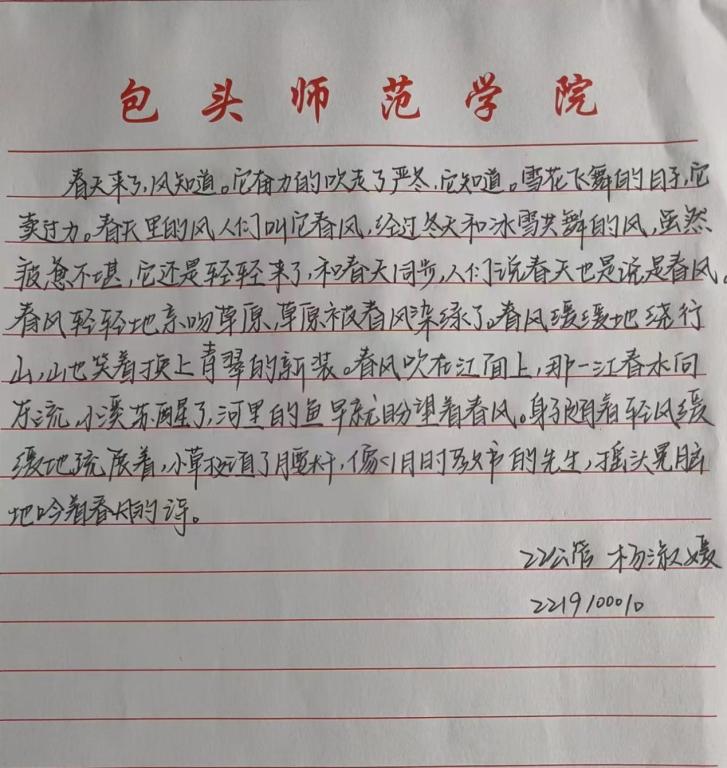 包头师范学院
春天来了,风知道。它奋力的吹走了严冬,它知道。雪花飞舞的日子,它
卖过力。春天里的风人们叫它春风,经过冬天和冰雪共舞的风,虽然
疲惫不堪,它还是轻轻来了,和春天同步,人们说春天也是说是春风。
春风轻轻地亲吻草原,草原被春风染绿了。春风缓缓地绕行
山,山也笑着顶上青翠的新装。春风吹在江面上,那一江春水向
东流,小溪苏醒了,河里的鱼早就盼望着春风。身子随着轻风缓
缓地疏展着,小草挺直了腰杆,像旧时的先生,摇头晃脑
地吟着春风的诗。
22公管 杨淑媛
2219100010